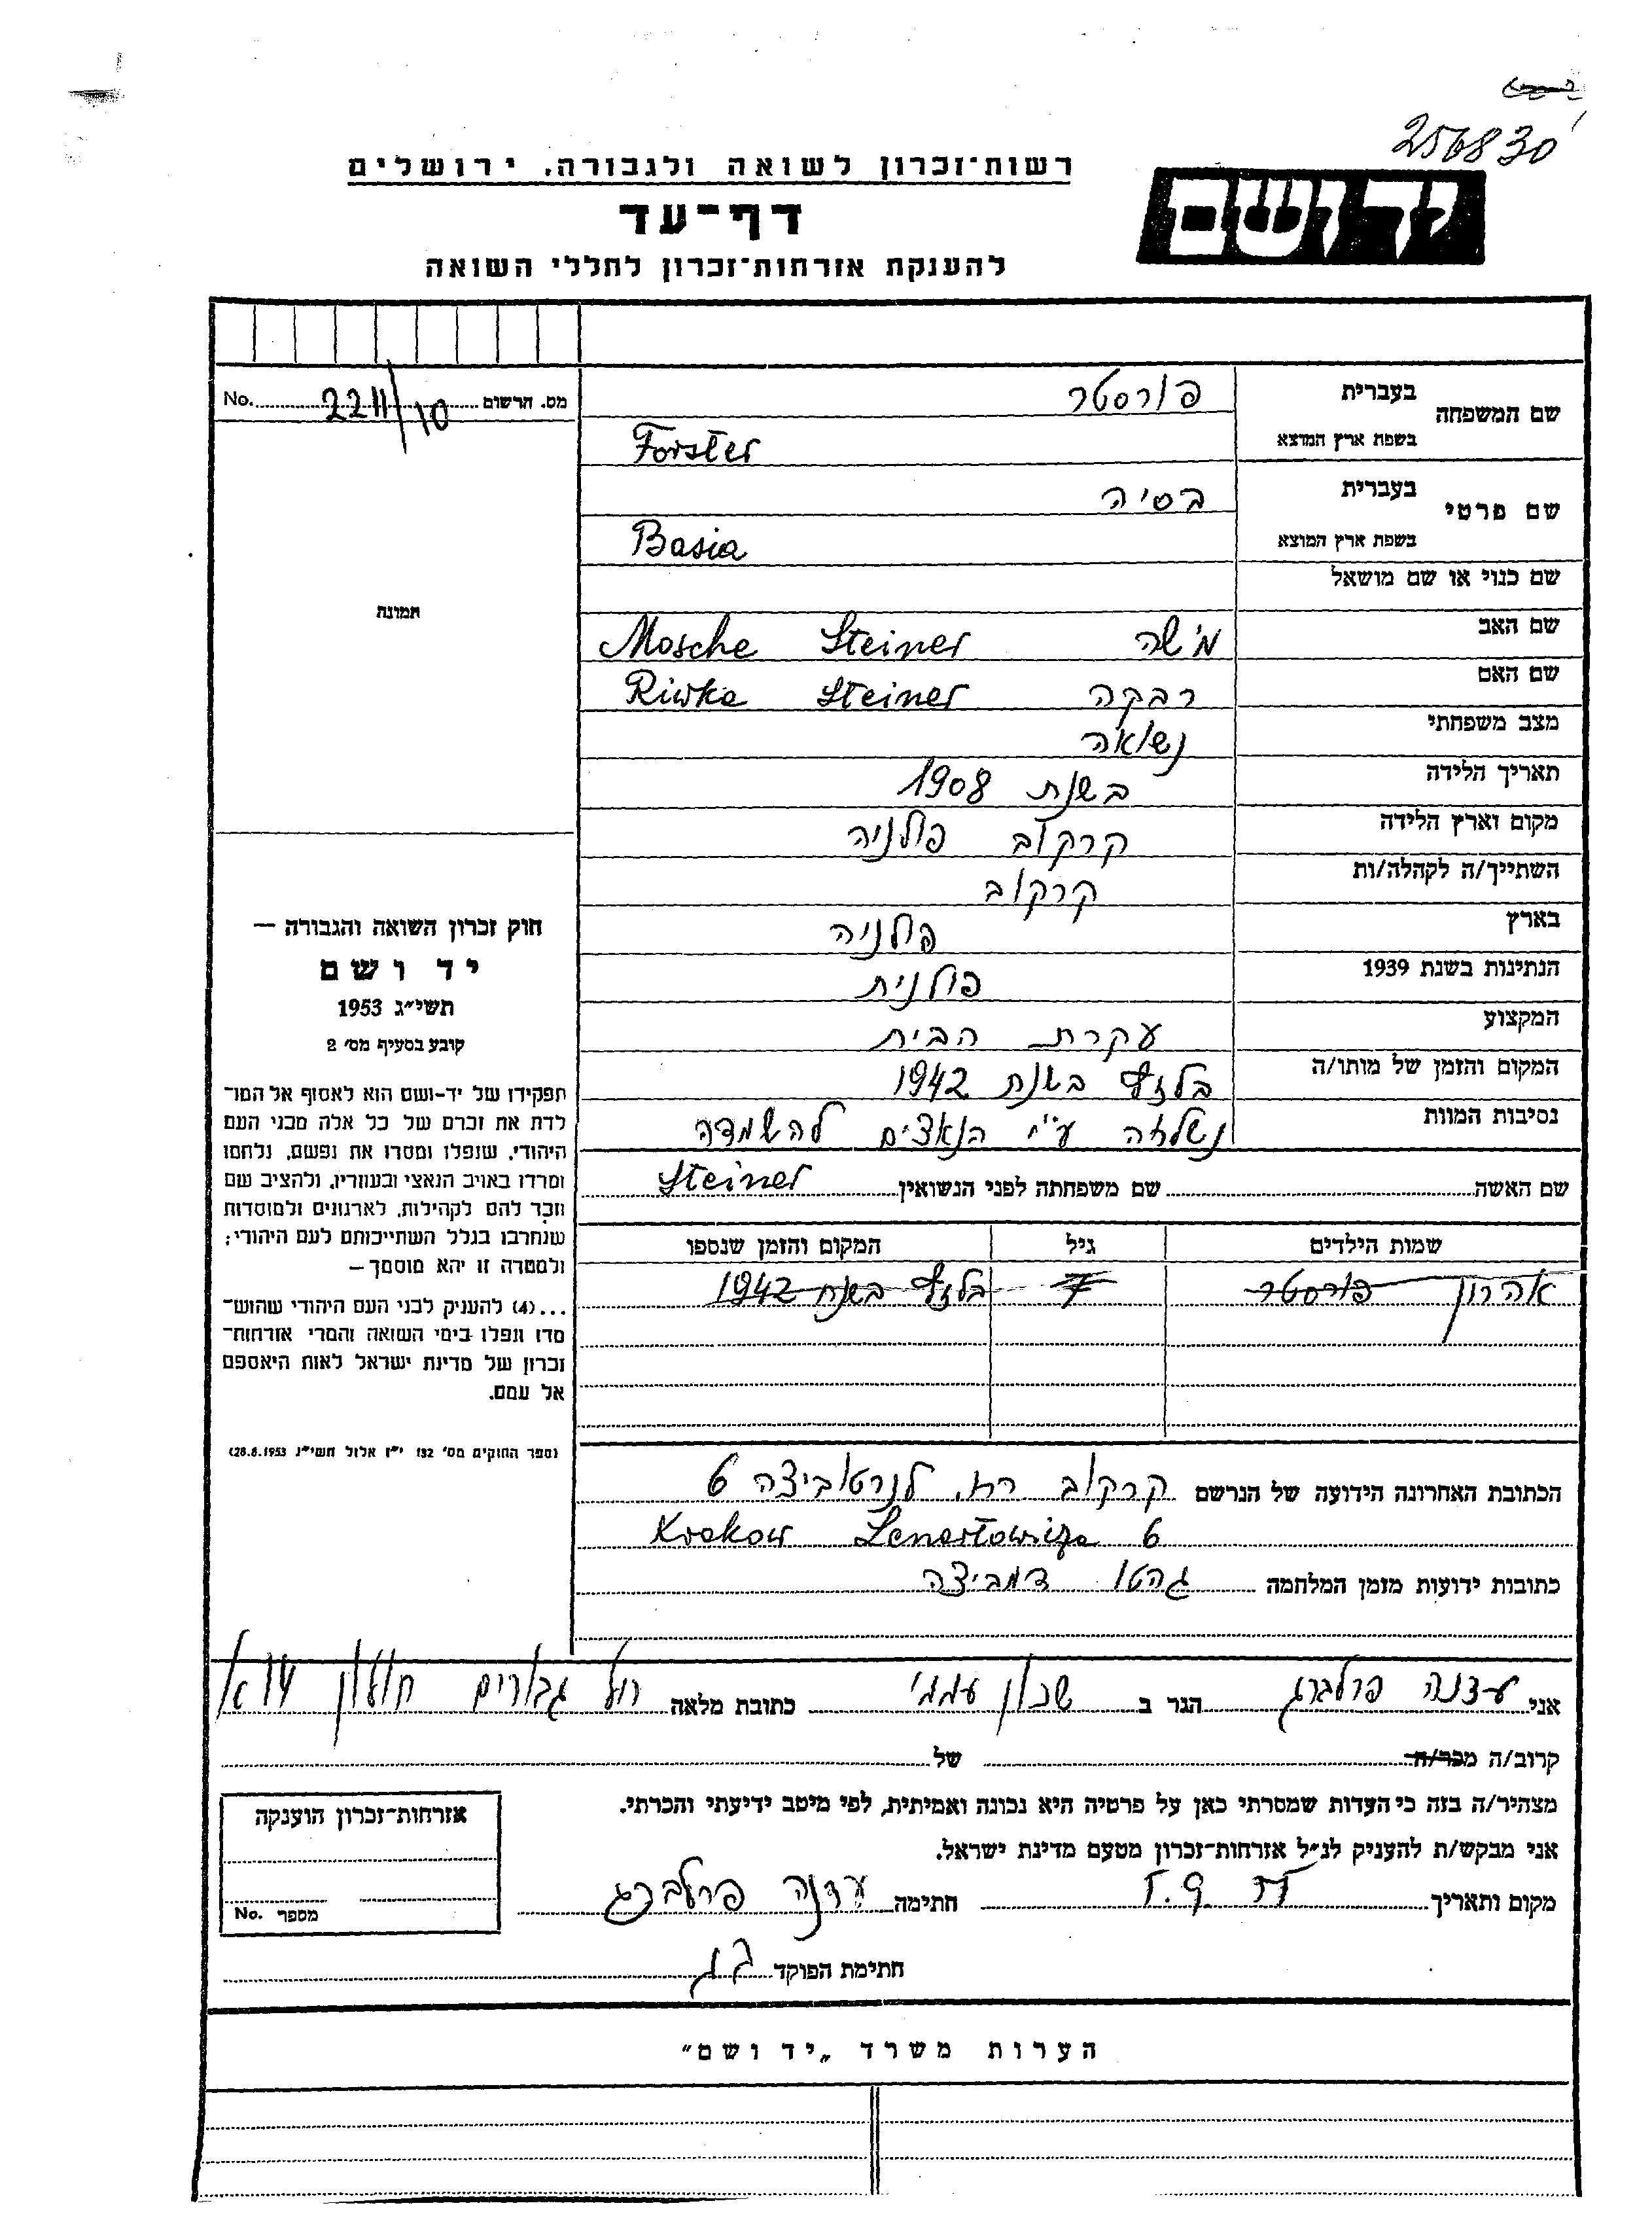 256830
רשות-זכרון לשואה ולגבורה, ירושלים
יד ושם
דף-עד
להענקת אזרחות-זכרון לחללי השואה
מס. הרשום 2211/10 No.
שם המשפחה בעברית פורסטר
בשפת ארץ המוצא Forster
שם פרטי בעברית בסיה
בשפת ארץ המוצא Basia
שם כנוי או שם מושאל
תמונה
שם האב משה Mosche Steiner
שם האם רבקה Riwka Steiner
מצב משפחתי נשואה
תאריך הלידה בשנת 1908
מקום וארץ הלידה קרקוב פולניה
השתייך/ה לקהלה/ות קרקוב
בארץ פולניה
הנתינות בשנת 1939 פולנית
המקצוע עקרת הבית
המקום והזמן של מותו/ה בלזץ בשנת 1942
נסיבות המוות נשלחה ע"י הנאצים להשמדה
שם האשה שם משפחתה לפני הנשואין Steiner
שמות הילדים גיל המקום והזמן שנספו
אהרון פורסטר 7 בלזץ בשנת 1942
חוק זכרון השואה והגבורה —
יד ושם
תשי"ג 1953
קובע בסעיף מס' 2
תפקידו של יד-ושם הוא לאסוף אל המו-
לדת את זכרם של כל אלה מבני העם
היהודי, שנפלו ומסרו את נפשם, נלחמו
ומרדו באויב הנאצי ובעוזריו, ולהציב שם
וזכר להם לקהילות, לארגונים ולמוסדות
שנחרבו בגלל השתייכותם לעם היהודי;
ולמטרה זו יהא מוסמך —
...(4) להענין לבני העם היהודי שהוש-
מדו ונפלו בימי השואה והמרי אזרחות-
זכרון של מדינת ישראל לאות היאספם
אל עמם.
(ספר החוקים מס' 132 י"ז אלול תשי"ג 28.8.1953)
הכתובת האחרונה הידועה של הנרשם קרקוב רח. לנרטוביצה 6
Krakow Lenartowicza 6
כתובות ידועות מזמן המלחמה גהטו דמביצה
אני עדנה פרלברג הגר ב שכון עממי כתובת מלאה גבורים חולון
קרוב/ה מכר/ה של
מצהיר/ה בזה כי העדות שמסרתי כאן על פרטיה היא נכונה ואמיתית, לפי מיטב ידיעתי והכרתי.
אני מבקש/ת להעניק לנ"ל אזרחות-זכרון מטעם מדינת ישראל.
מקום ותאריך חתימה עדנה פרלברג
חתימת הפוקד
אזרחות-זכרון הוענקה
מספר No.
הערות משרד „יד ושם"